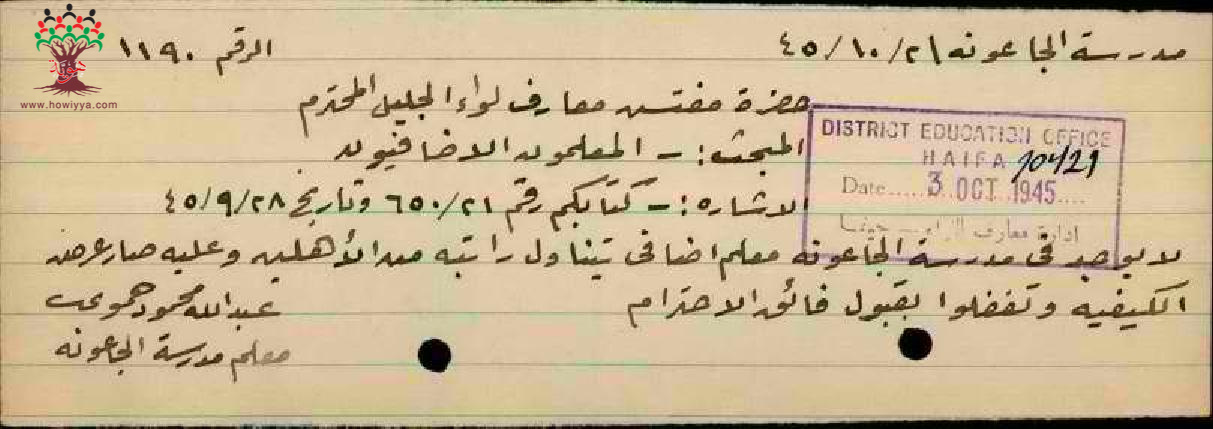 مدرسة الجاعونه ٤٥/١٠/٢١
الرقم ١١٩٠
www.howiyya.com
حضرة مفتش معارف لواء الجليل المحترم
المبحث : - المعلمون الاضافيون
الاشاره : - كتابكم رقم ٦٥٠/٢١ وتاريخ ٤٥/٩/٢٨
DISTRICT EDUCATION OFFICE
HAIFA
704/21
Date..... 3 OCT 1945....
ادارة معارف اللواء حيفا
لا يوجد في مدرسة الجاعونه معلم اضافي يتناول راتبه من الأهلين وعليه صار عرض
الكيفيه وتفضلوا بقبول فائق الاحترام
عبدالله محمود
معلم مدرسة الجاعونه